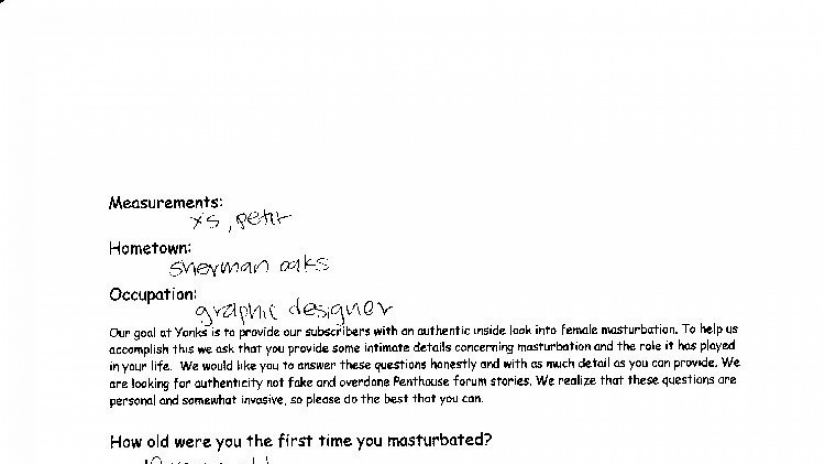 Measurements:
xs, petit
Hometown:
sherman oaks
Occupation:
graphic designer
Our goal at Yanks is to provide our subscribers with an authentic inside look into female masturbation. To help us
accomplish this we ask that you provide some intimate details concerning masturbation and the role it has played
in your life. We would like you to answer these questions honestly and with as much detail as you can provide. We
are looking for authenticity not fake and overdone Penthouse forum stories. We realize that these questions are
personal and somewhat invasive, so please do the best that you can.
How old were you the first time you masturbated?